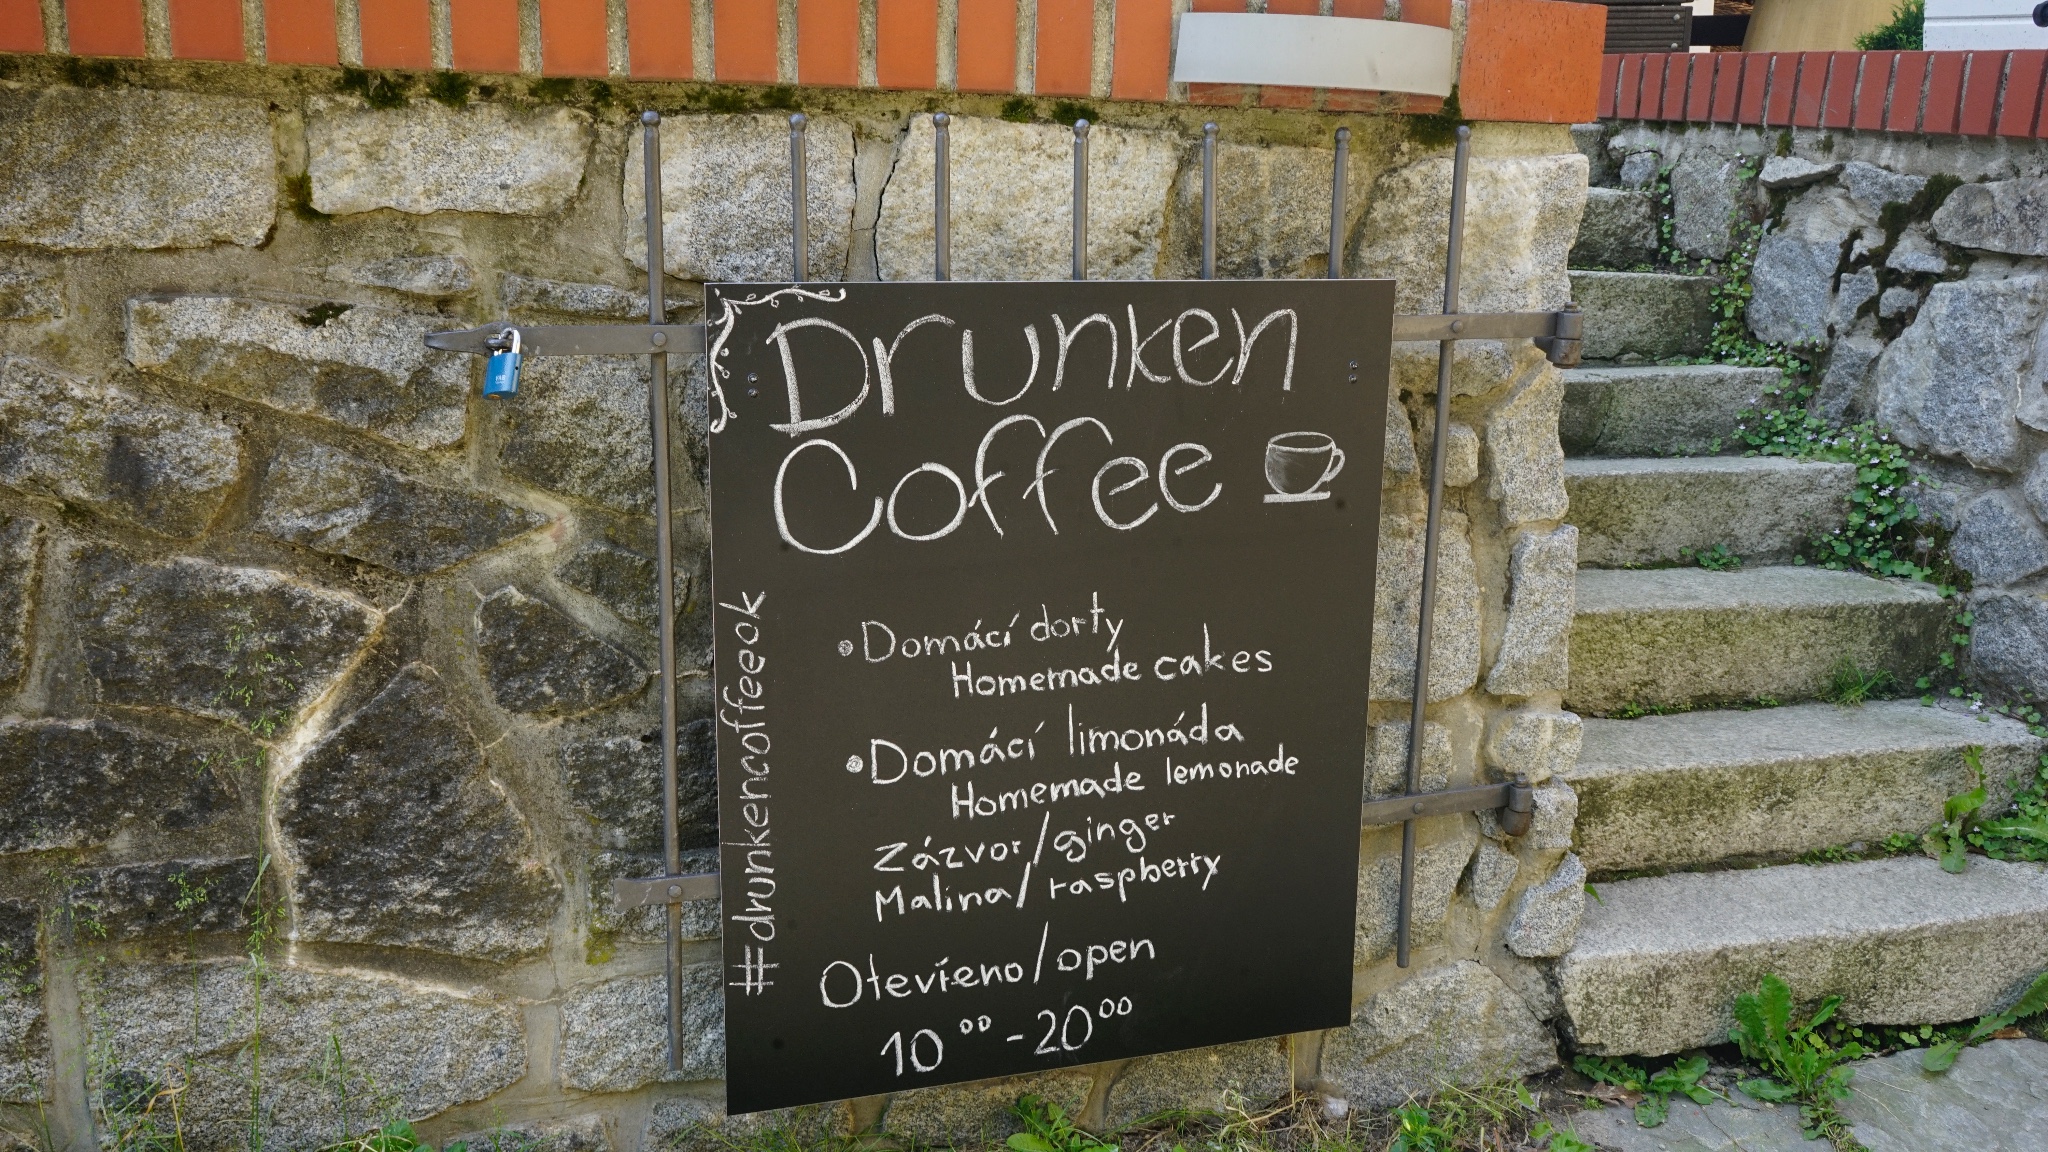 Drunken
Coffee
#drunkencoffeeok
• Domácí dorty
Homemade cakes
• Domácí limonáda
Homemade lemonade
Zázvor/ginger
Malina/raspberry
Otevřeno/open
10⁰⁰ - 20⁰⁰